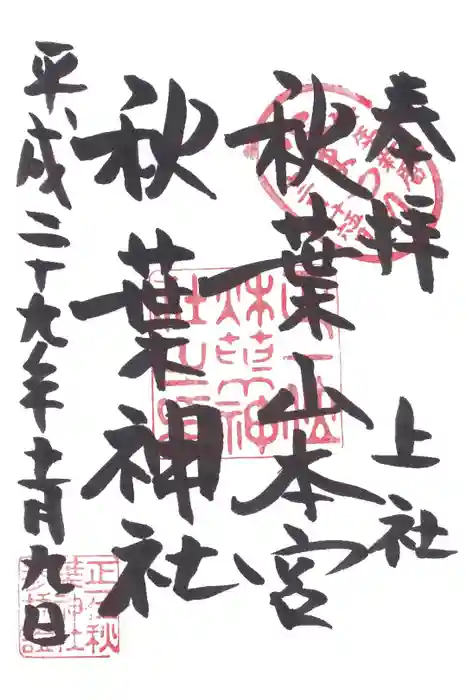 奉拝 上社
秋葉山本宮
秋葉神社
平成二十九年十一月九日
正一位
秋葉神
社之
正一位秋
葉神社